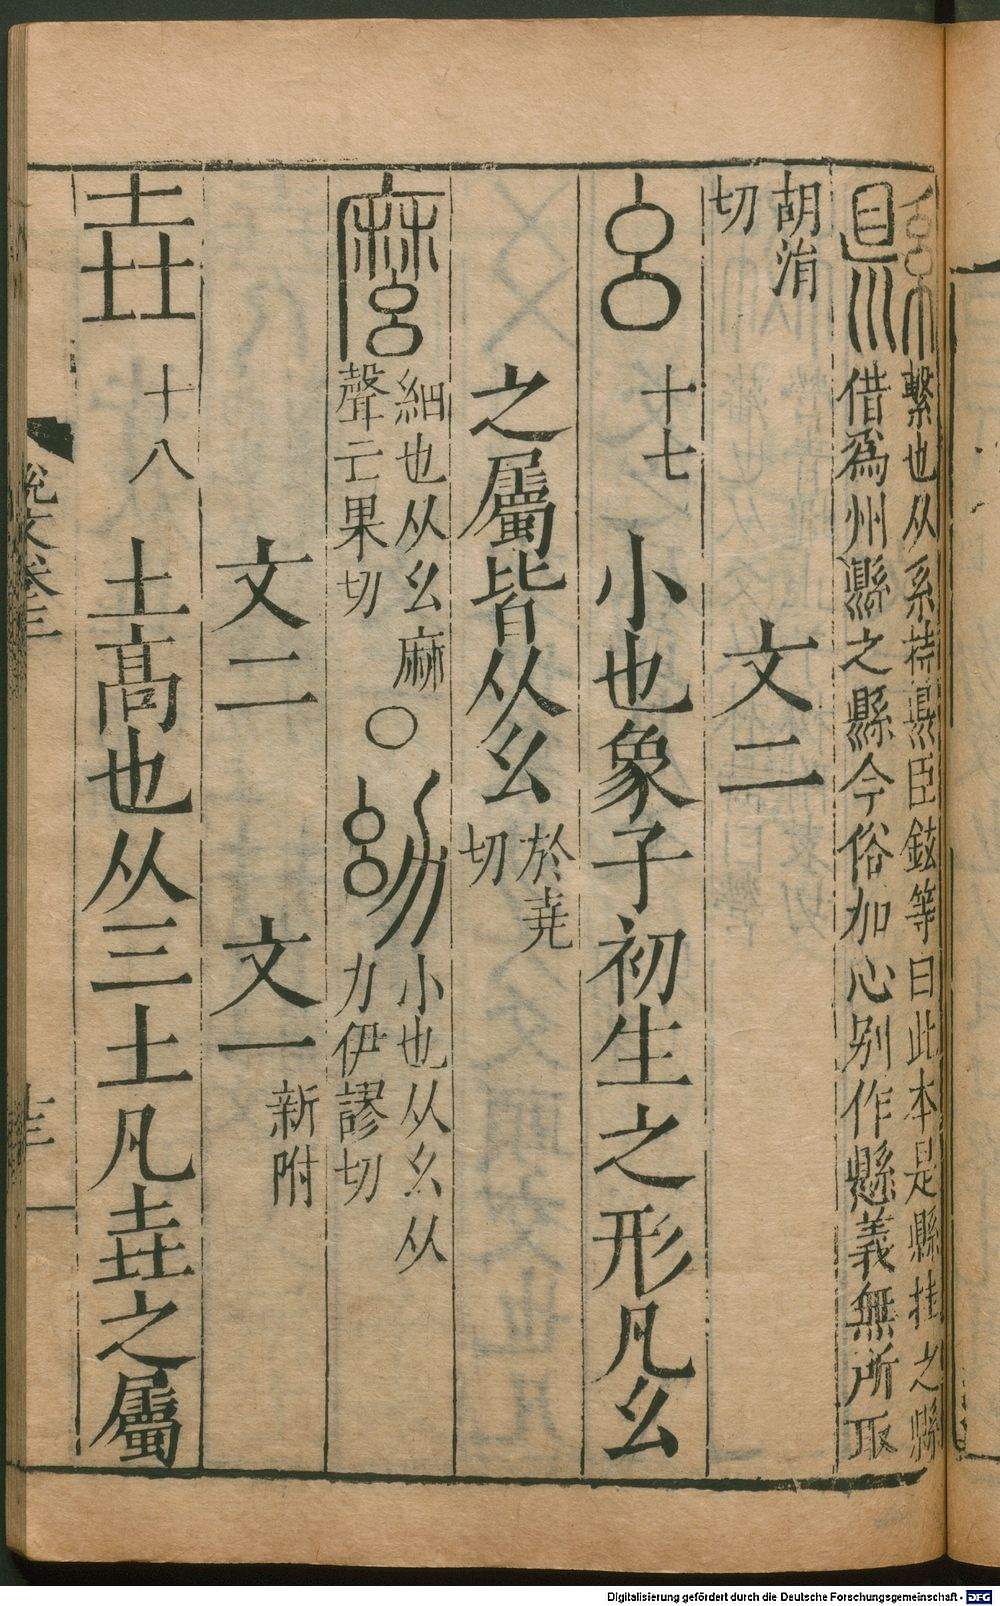 縣 繫也从系持県臣鉉等曰此本是縣挂之縣
借爲州縣之縣今俗加心別作懸義無所取
胡涓
切
文二
幺 十七 小也象子初生之形凡幺
之屬皆从幺 於堯
切
麼 細也从幺麻
聲亡果切
〇幼 小也从幺从
力伊謬切
文二 文一 新附
垚 十八 土高也从三土凡垚之屬
説文卷三
十三
Digitalisierung gefördert durch die Deutsche Forschungsgemeinschaft - DFG